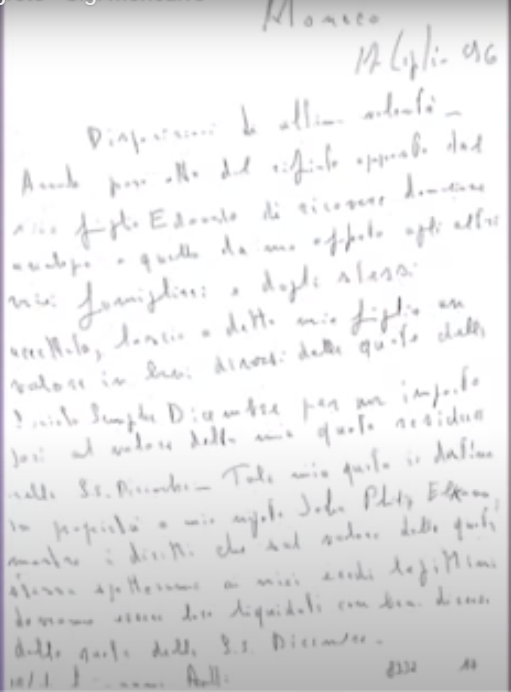 Monaco
17 luglio 96
Disposizioni di ultima volontà -
Avendo preso atto del rifiuto opposto dal
mio figlio Edoardo di ricevere donazione
analoga a quella da me offerta agli altri
miei famigliari e dagli stessi
accettata, lascio a detto mio figlio un
valore in beni diversi dalle quote della
Società Semplice Dicembre per un importo
pari al valore della mia quota residua
nella S.s. Dicembre - Tale mia quota io destino
in proprietà a mio nipote John Elkann,
mentre i diritti che sul valore delle quote
stesse spetteranno a miei eredi legittimi
dovranno essere loro liquidati con beni diversi
dalle quote della S.s. Dicembre -
8332